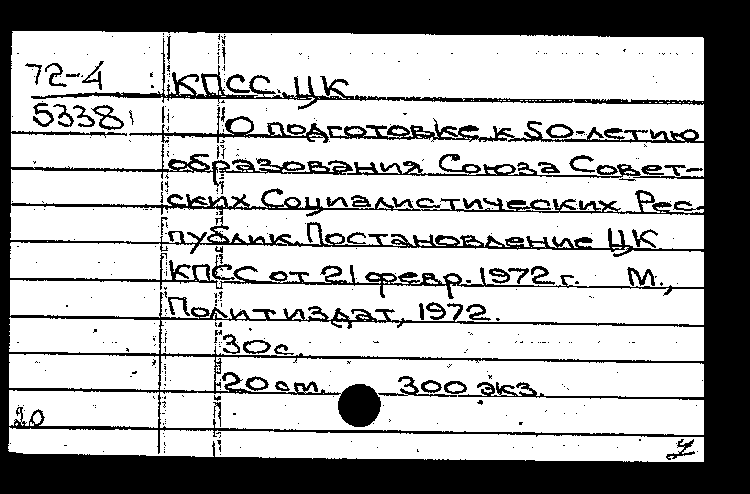 72-4 КПСС. ЦК
5338 О подготовке к 50-летию
образования Союза Совет-
ских Социалистических Рес-
публик. Постановление ЦК
КПСС от 21 февр. 1972 г. М.,
Политиздат, 1972.
30 с.
20 см. 300 экз.
20